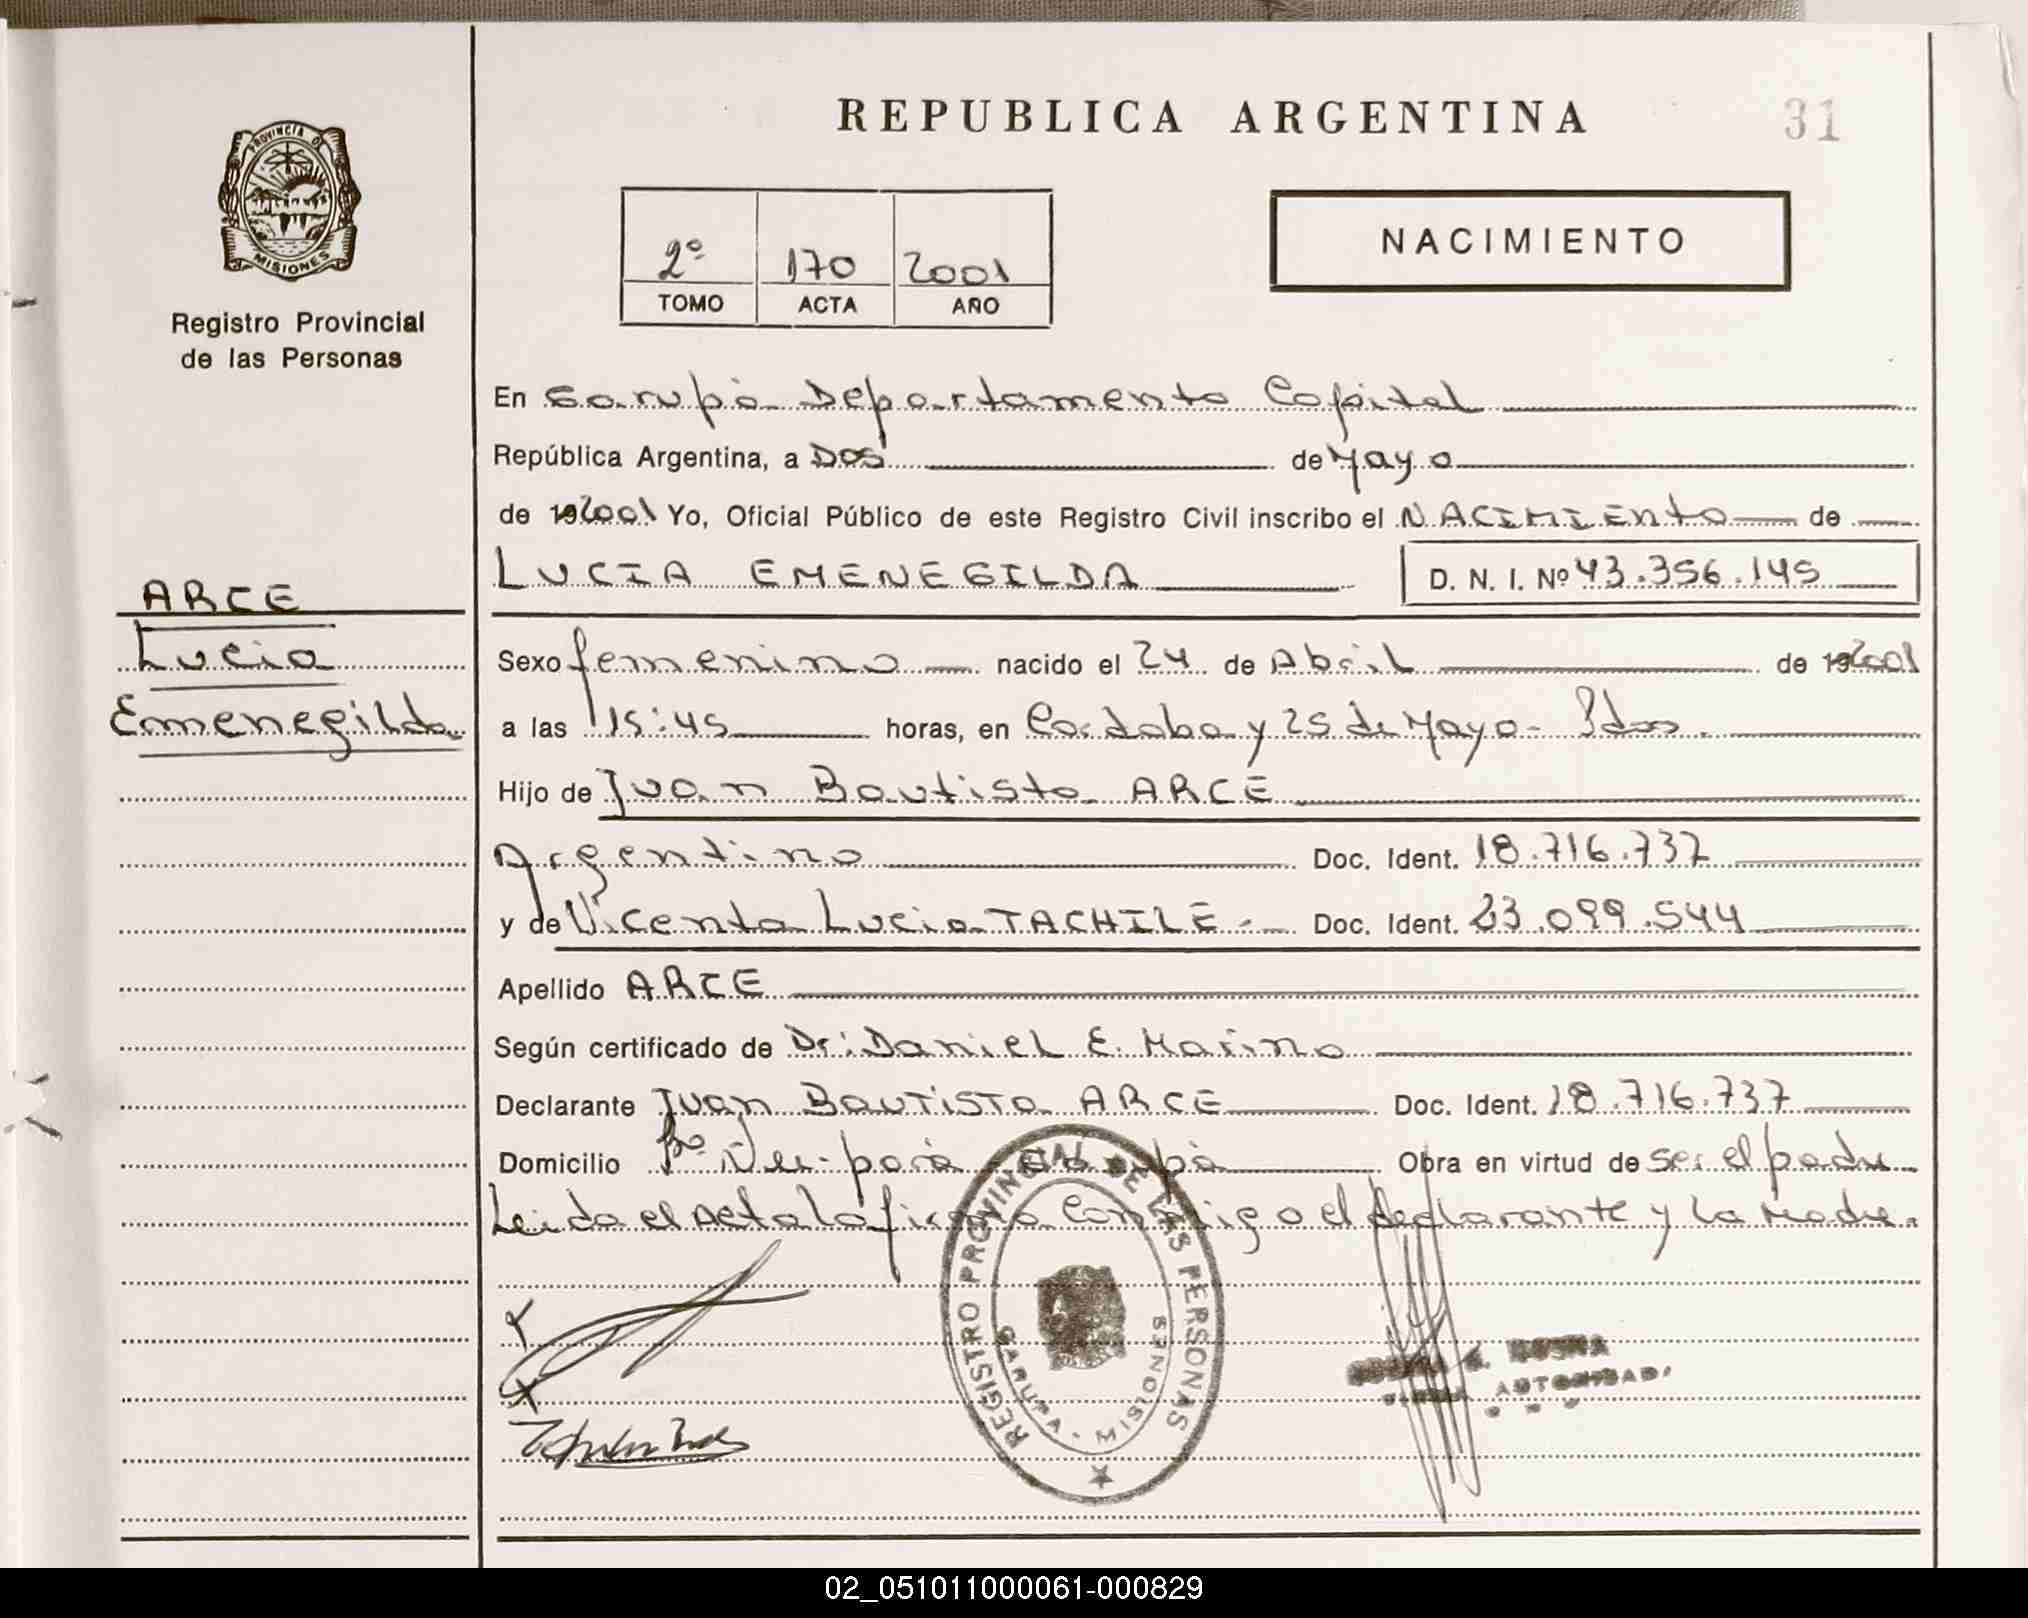 REPUBLICA ARGENTINA
31
PROVINCIA DE
MISIONES
Registro Provincial
de las Personas
2º 170 2001
TOMO ACTA AÑO
NACIMIENTO
En Garupá Departamento Capital
República Argentina, a Dos de Mayo
de 192001 Yo, Oficial Público de este Registro Civil inscribo el NACIMIENTO de
LUCIA EMENEGILDA D. N. I. Nº 43.356.145
ARCE
Lucia
Emenegilda
Sexo femenino nacido el 24 de Abril de 192001
a las 15:45 horas, en Cordoba y 25 de Mayo - Pdas.
Hijo de Juan Bautista ARCE
Argentino Doc. Ident. 18.716.737
y de Vicenta Lucia TACHILE - Doc. Ident. 23.099.544
Apellido ARCE
Según certificado de Dr: Daniel E. Marino
Declarante Juan Bautista ARCE Doc. Ident. 18.716.737
Domicilio Bº Ñu-porá Garupá Obra en virtud de ser el padre
Leida el Acta la firman conmigo el declarante y la Madre.
REGISTRO PROVINCIAL DE LAS PERSONAS
GARUPA - MISIONES
AUTORIZADA
02_051011000061-000829